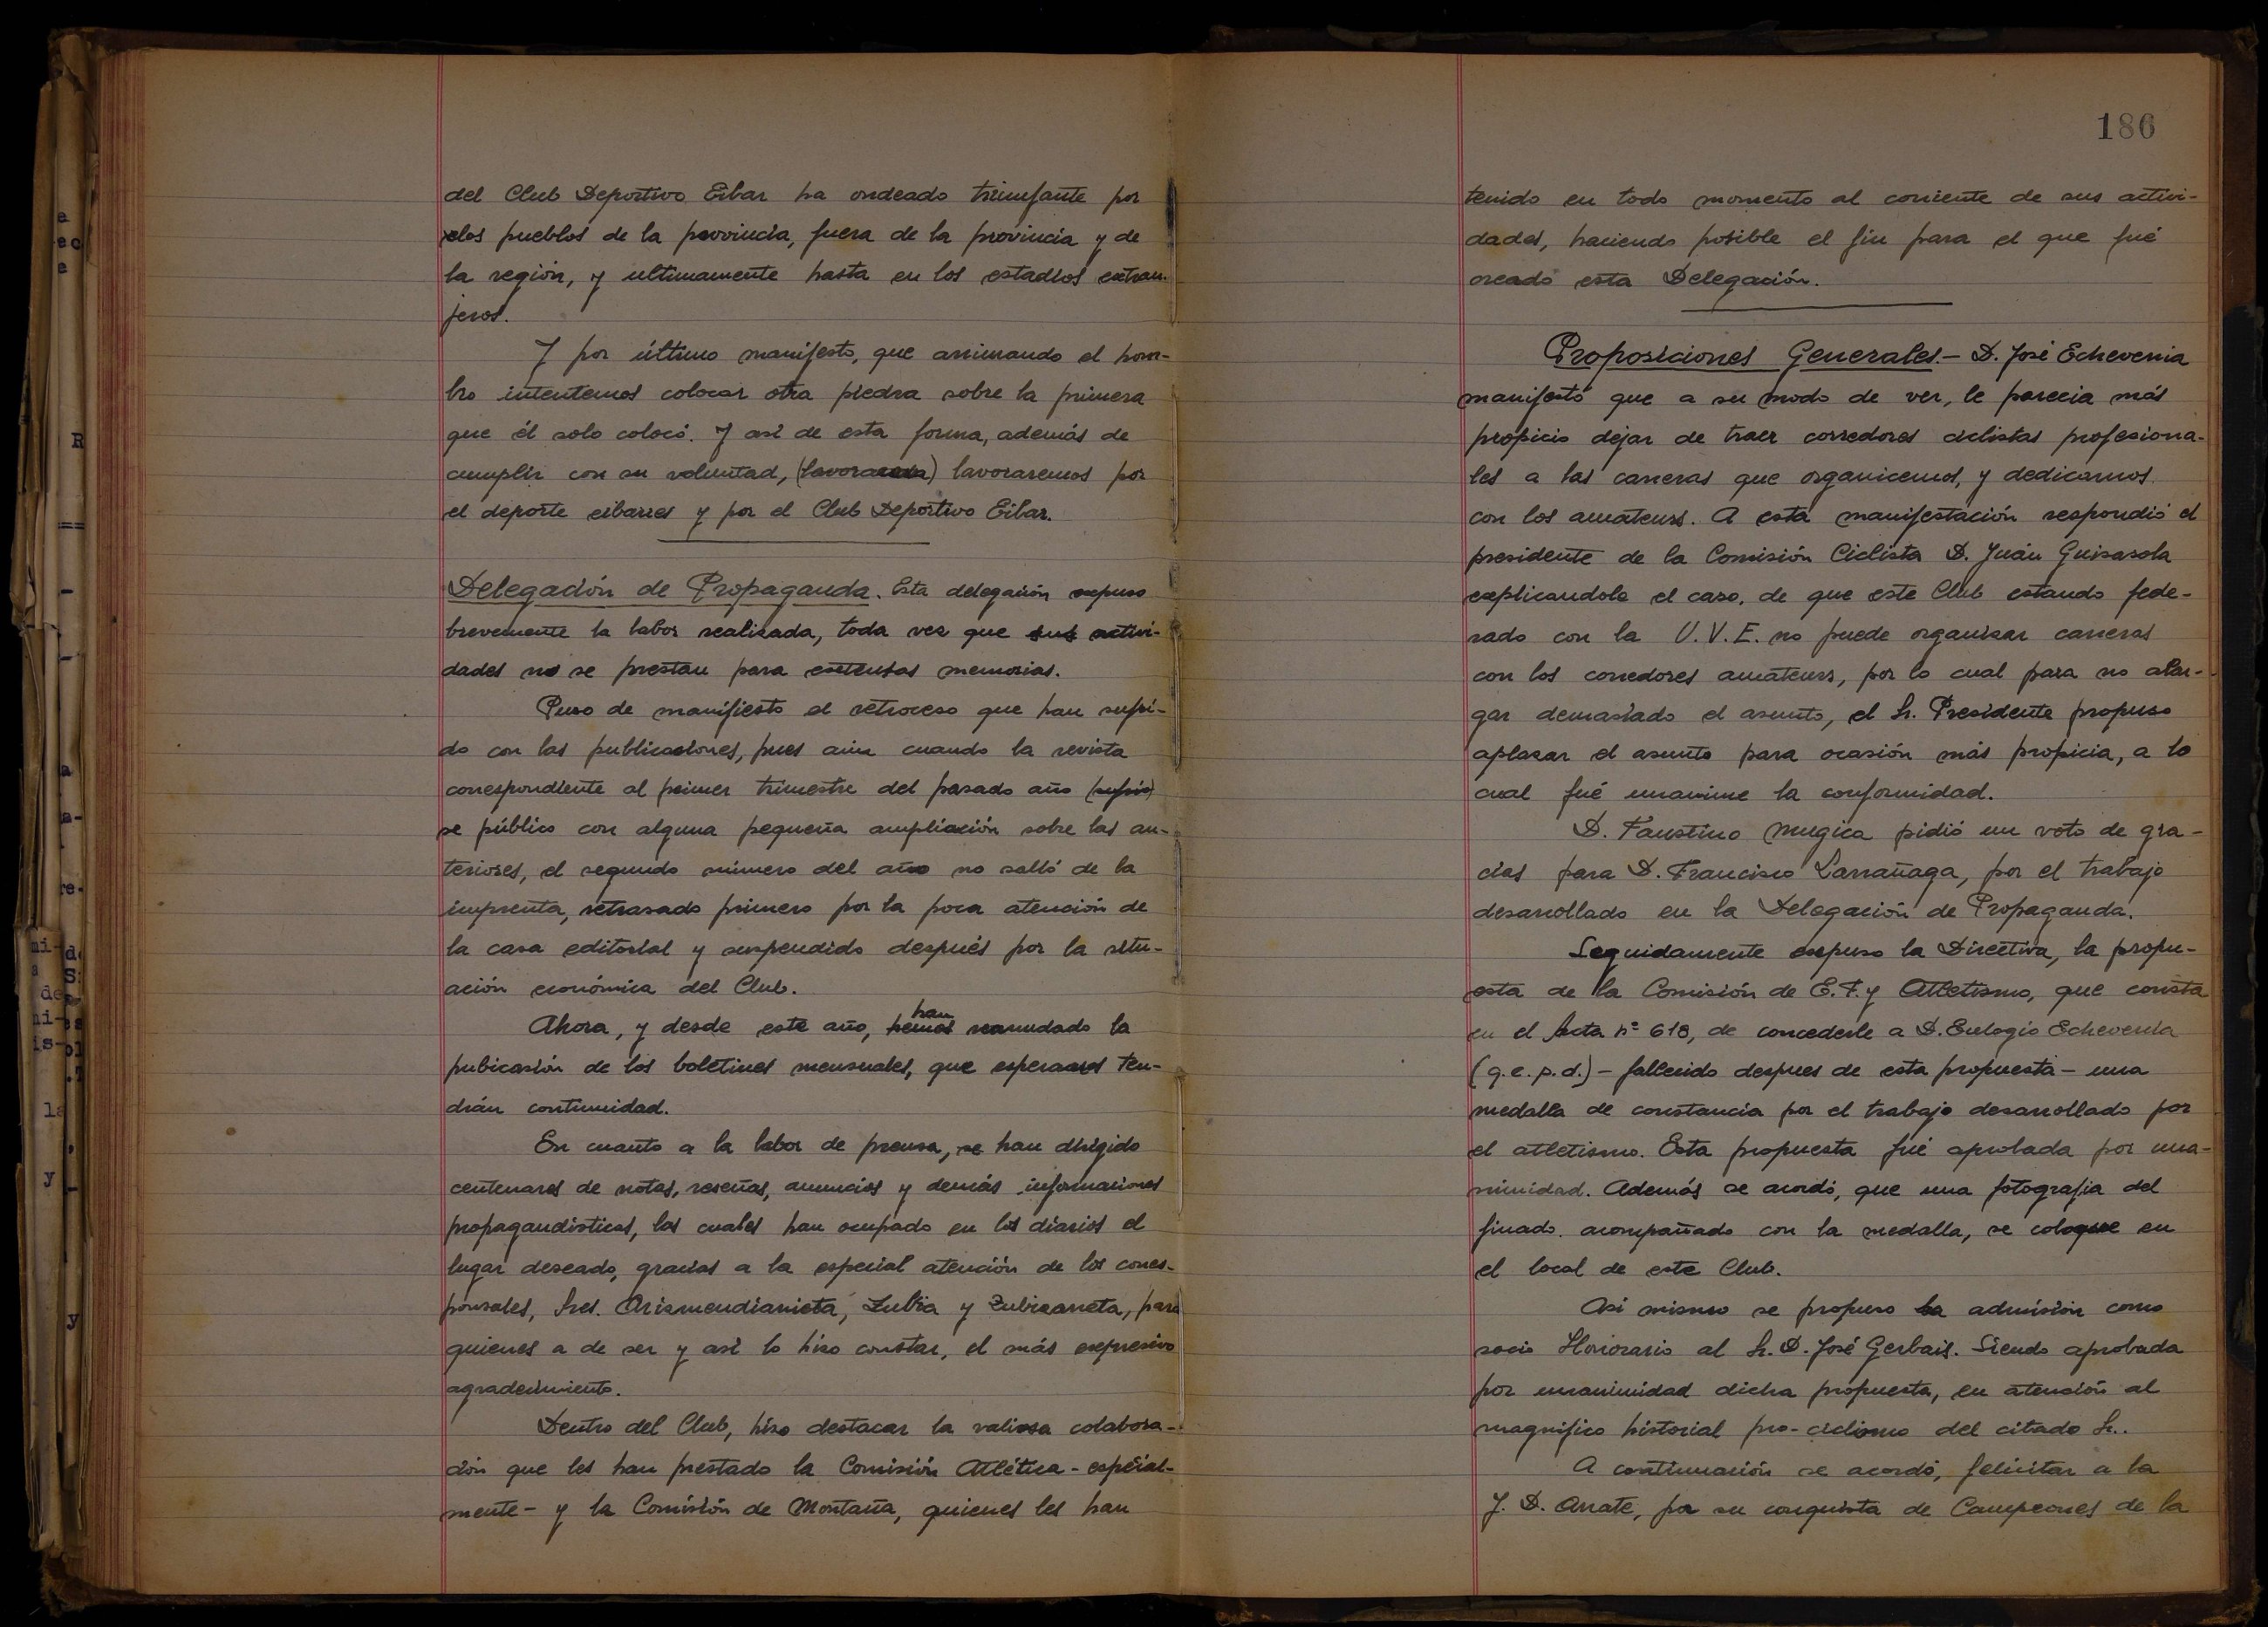 del Club Deportivo Eibar ha ondeado triunfante por
los pueblos de la provincia, fuera de la provincia y de
la región, y ultimamente hasta en los estadios extran-
jeros.
Y por último manifesto, que arrimando el hom-
bro intentemos colocar otra piedra sobre la primera
que él solo colocó. Y así de esta forma, además de
cumplir con su voluntad, lavoraremos por
el deporte eibarres y por el Club Deportivo Eibar.
Delegación de Propaganda. Esta delegación expuso
brevemente la labor realizada, toda vez que sus activi-
dades no se prestan para extensas memorias.
Puso de manifiesto el retroceso que han sufri-
do con las publicaciones, pues aún cuando la revista
correspondiente al primer trimestre del pasado año (sufrió)
se público con alguna pequeña ampliación sobre las an-
teriores, el segundo número del año no salió de la
imprenta, retrasado primero por la poca atención de
la casa editorial y suspendido después por la situ-
ación económica del Club.
han
Ahora, y desde este año, hemos reanudado la
pubicasión de los boletines mensuales, que esperamos ten-
drán continuidad.
En cuanto a la labor de prensa, se han dirigido
centenares de notas, reseñas, anuncios y demás informaciones
propagandísticas, las cuales han ocupado en los diarios el
lugar deseado, gracias a la especial atención de los corres-
ponsales, Sres. Arizmendiarrieta, Zubia y Zubizarreta, para
quienes a de ser y así lo hizo constar, el más expresivo
agradecimiento.
Dentro del Club, hizo destacar la valiosa colabora-
ción que les han prestado la Comisión Atlética - especial-
mente - y la Comisión de Montaña, quienes les han
186
tenido en todo momento al corriente de sus activi-
dades, haciendo posible el fin para el que fué
creado esta Delegación.
Proposiciones Generales.- D. José Echeverria
manifestó que a su modo de ver, le parecia más
propicio dejar de traer corredores ciclistas profesiona-
les a las carreras que organicemos, y dedicarnos
con los amateurs. A esta manifestación respondió el
presidente de la Comisión Ciclista D. Juán Guisasola
explicandole el caso, de que este Club estando fede-
rado con la U.V.E. no puede organizar carreras
con los corredores amateurs, por lo cual para no alar-
gar demasiado el asunto, el Sr. Presidente propuso
aplazar el asunto para ocasión más propicia, a lo
cual fué unanime la conformidad.
D. Faustino Mugica pidió un voto de gra-
cias para D. Francisco Larrañaga, por el trabajo
desarrollado en la Delegación de Propaganda.
Seguidamente expuso la Directiva, la propu-
esta de la Comisión de E.F. y Atletismo, que consta
en el Acta nº 618, de concederle a D. Eulogio Echeverria
(q.e.p.d.) - fallecido despues de esta propuesta - una
medalla de constancia por el trabajo desarrollado por
el atletismo. Esta propuesta fué aprobada por una-
nimidad. Además se acordó, que una fotografia del
finado. acompañado con la medalla, se coloque en
el local de este Club.
Asi mismo se propuso la admisión como
socio Honorario al Sr. D. José Gerbais. Siendo aprobada
por unanimidad dicha propuesta, en atención al
magnifico historial pro-ciclismo del citado Sr..
A continuación se acordó, felicitar a la
J. D. Arrate, por su conquista de Campeones de la